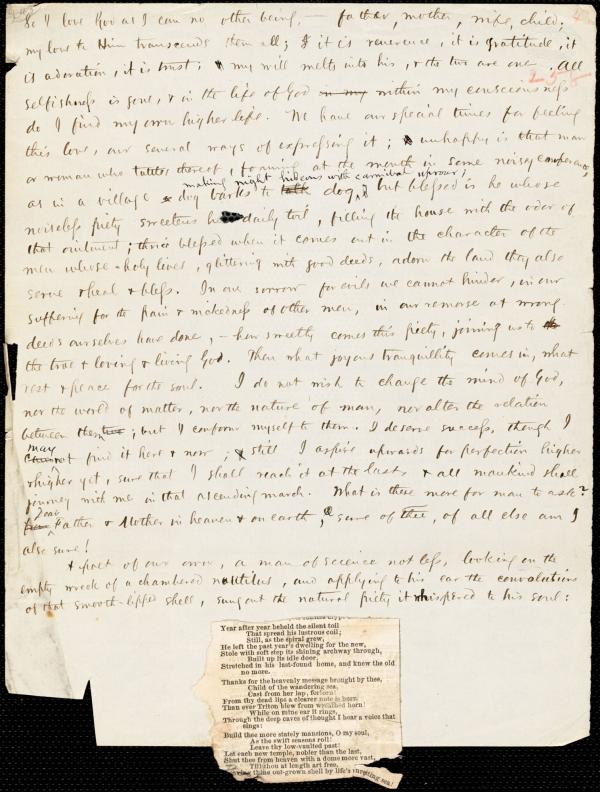 So I love God as I can no other being, — father, mother, wife, child;
my love to Him transcends them all; it is reverence, it is gratitude, it
is adoration, it is trust; my will melts into his, & the two are one. All
258
selfishness is gone, & in the life of God in my within my consciousness
do I find my own higher life. We have our special times for feeling
this love, our several ways of expressing it; unhappy is that man
or woman who tattles thereof, foaming at the mouth in some noisy conference,
making night hideous with carnival uproar;
as in a village dog barks to talk dog, but blessed is he whose
noiseless piety sweetens his daily toil, filling the house with the odor of
that ointment; thrice blessed when it comes out in the character of the
men whose holy lives, glittering with good deeds, adorn the land they also
serve & heal & bless. In our sorrow for evils we cannot hinder, in our
suffering for the pain & wickedness of other men, in our remorse at wrong
deeds ourselves have done, – how sweetly comes this piety, joining us to
the true & loving & living God. Then what joyous tranquillity comes in, what
rest & peace for the soul. I do not wish to change the mind of God,
nor the world of matter, nor the nature of man, nor alter the relation
between them; but I conform myself to them. I deserve success, though I
may
cannot find it here & now; still I aspire upwards for perfection higher
& higher yet, sure that I shall reach it at the last & all mankind shall
journey with me in that ascending march. What is there more for man to ask?
Dear
Father & Mother in heaven & on earth, sure of thee, of all else am I
also sure!
& poet of our own, a man of science not less, looking on the
empty wreck of a chambered nautilus, and applying to his ear the convolutions
of that smooth-lipped shell, sung out the natural piety it whispered to his soul:
Year after year beheld the silent toil
That spread his lustrous coil;
Still, as the spiral grew,
He left the past year's dwelling for the new,
Stole with soft step its shining archway through,
Built up its idle door,
Stretched in his last-found home, and knew the old
no more.
Thanks for the heavenly message brought by thee,
Child of the wandering sea,
Cast from her lap, forlorn!
From thy dead lips a clearer note is born
Than ever Triton blew from wreathed horn!
While on mine ear it rings,
Through the deep caves of thought I hear a voice that
sings:
Build thee more stately mansions, O my soul,
As the swift seasons roll!
Leave thy low-vaulted past!
Let each new temple, nobler than the last,
Shut thee from heaven with a dome more vast,
Till thou at length art free,
Leaving thine out-grown shell by life's unresting sea!